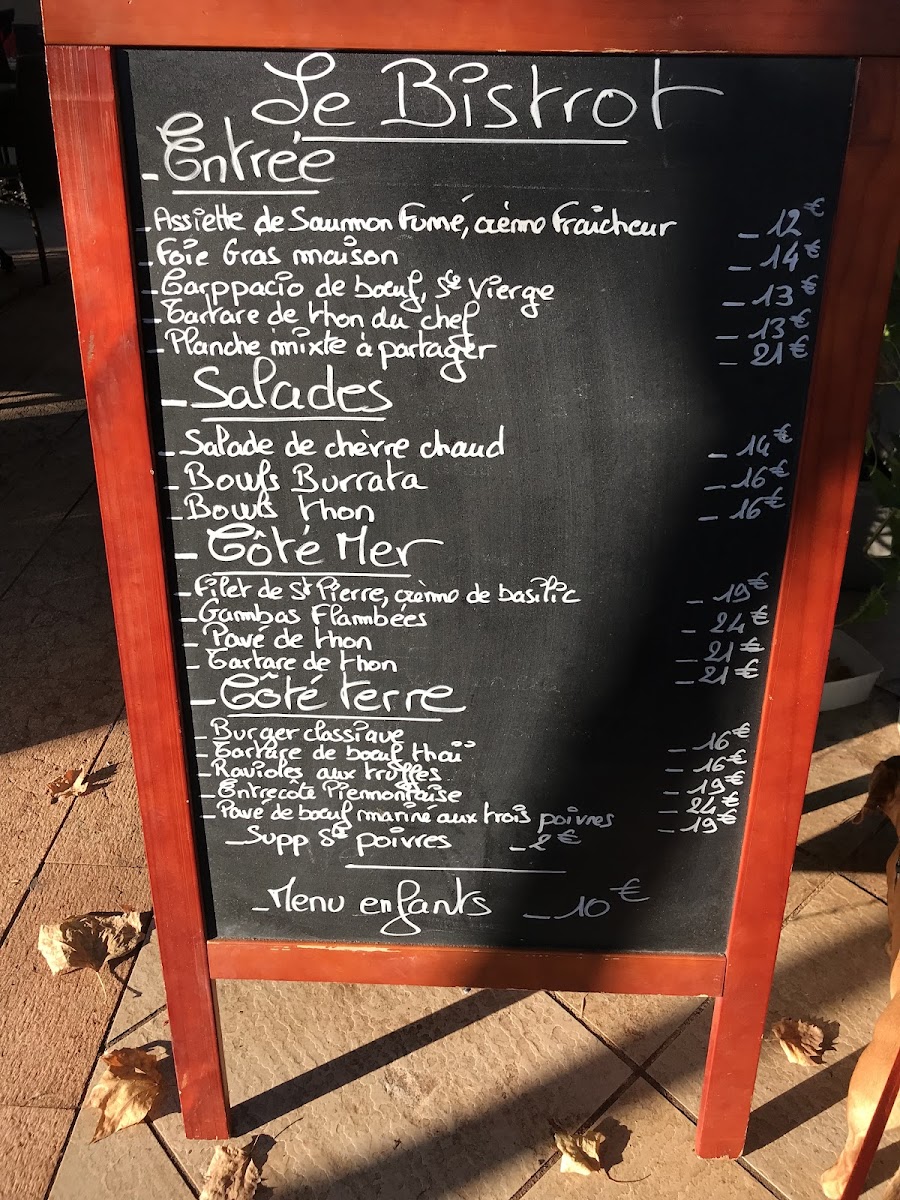 Le Bistrot
- Entrée
- Assiette de Saumon Fumé, crème Fraicheur - 12€
- Foie Gras maison - 14€
- Carppacio de bœuf, Sce Vierge - 13€
- Tartare de thon du chef - 13€
- Planche mixte à partager - 21€
- Salades
- Salade de chèvre chaud - 14€
- Bowls Burrata - 16€
- Bowls thon - 16€
- Côté Mer
- Filet de St Pierre, crème de basilic - 19€
- Gambas Flambées - 24€
- Pavé de thon - 21€
- Tartare de thon - 21€
- Côté terre
- Burger classique - 16€
- Tartare de bœuf thaï - 16€
- Ravioles aux truffes - 19€
- Entrecôte Piemontaise - 24€
- Pavé de bœuf mariné aux trois poivres - 19€
- Supp Sce poivres - 2€
- Menu enfants - 10€